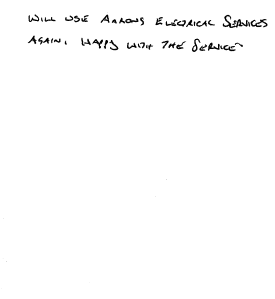 WILL USE AARONS ELECTRICAL SERVICES
AGAIN. HAPPY WITH THE SERVICE